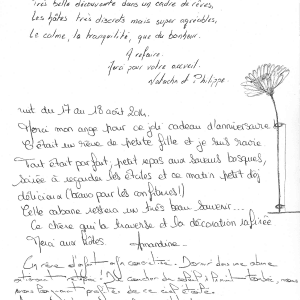 Très belle découverte dans un cadre de rêves,
Les hôtes très discrets mais super agréables,
Le calme, la tranquilité, que du bonheur.
A refaire.
Merci pour votre accueil.
Natacha et Philippe.
nuit du 17 au 18 août 2014.
Merci mon ange pour ce joli cadeau d'anniversaire
C'était un rêve de petite fille et je suis ravie
Tout était parfait, petit repas aux saveurs basques,
soirée à regarder les étoiles et ce matin petit dej
délicieux (bravo pour les confitures!)
Cette cabane restera un très beau souvenir...
Ce chêne qui la traverse et la décoration raffinée
Merci aux hôtes. Amandine
En rêve d'enfant Dormir dans une cabane
nous profité de ce ciel étoilé